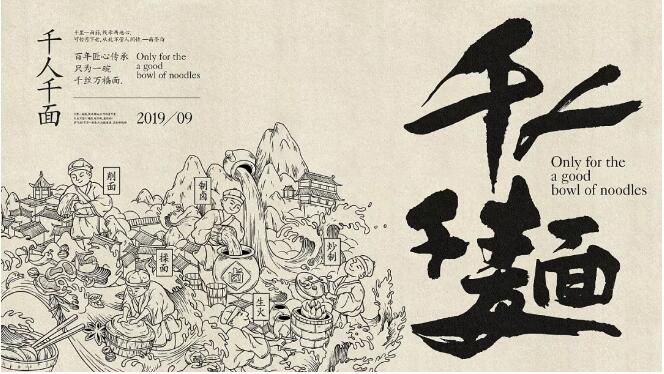 千人千面
百年匠心传承
只为一碗
千丝万福面.
Only for the
a good
bowl of noodles
2019/09
削面
制卤
揉面
炒制
生火
千人
千麵
Only for the
a good
bowl of noodles